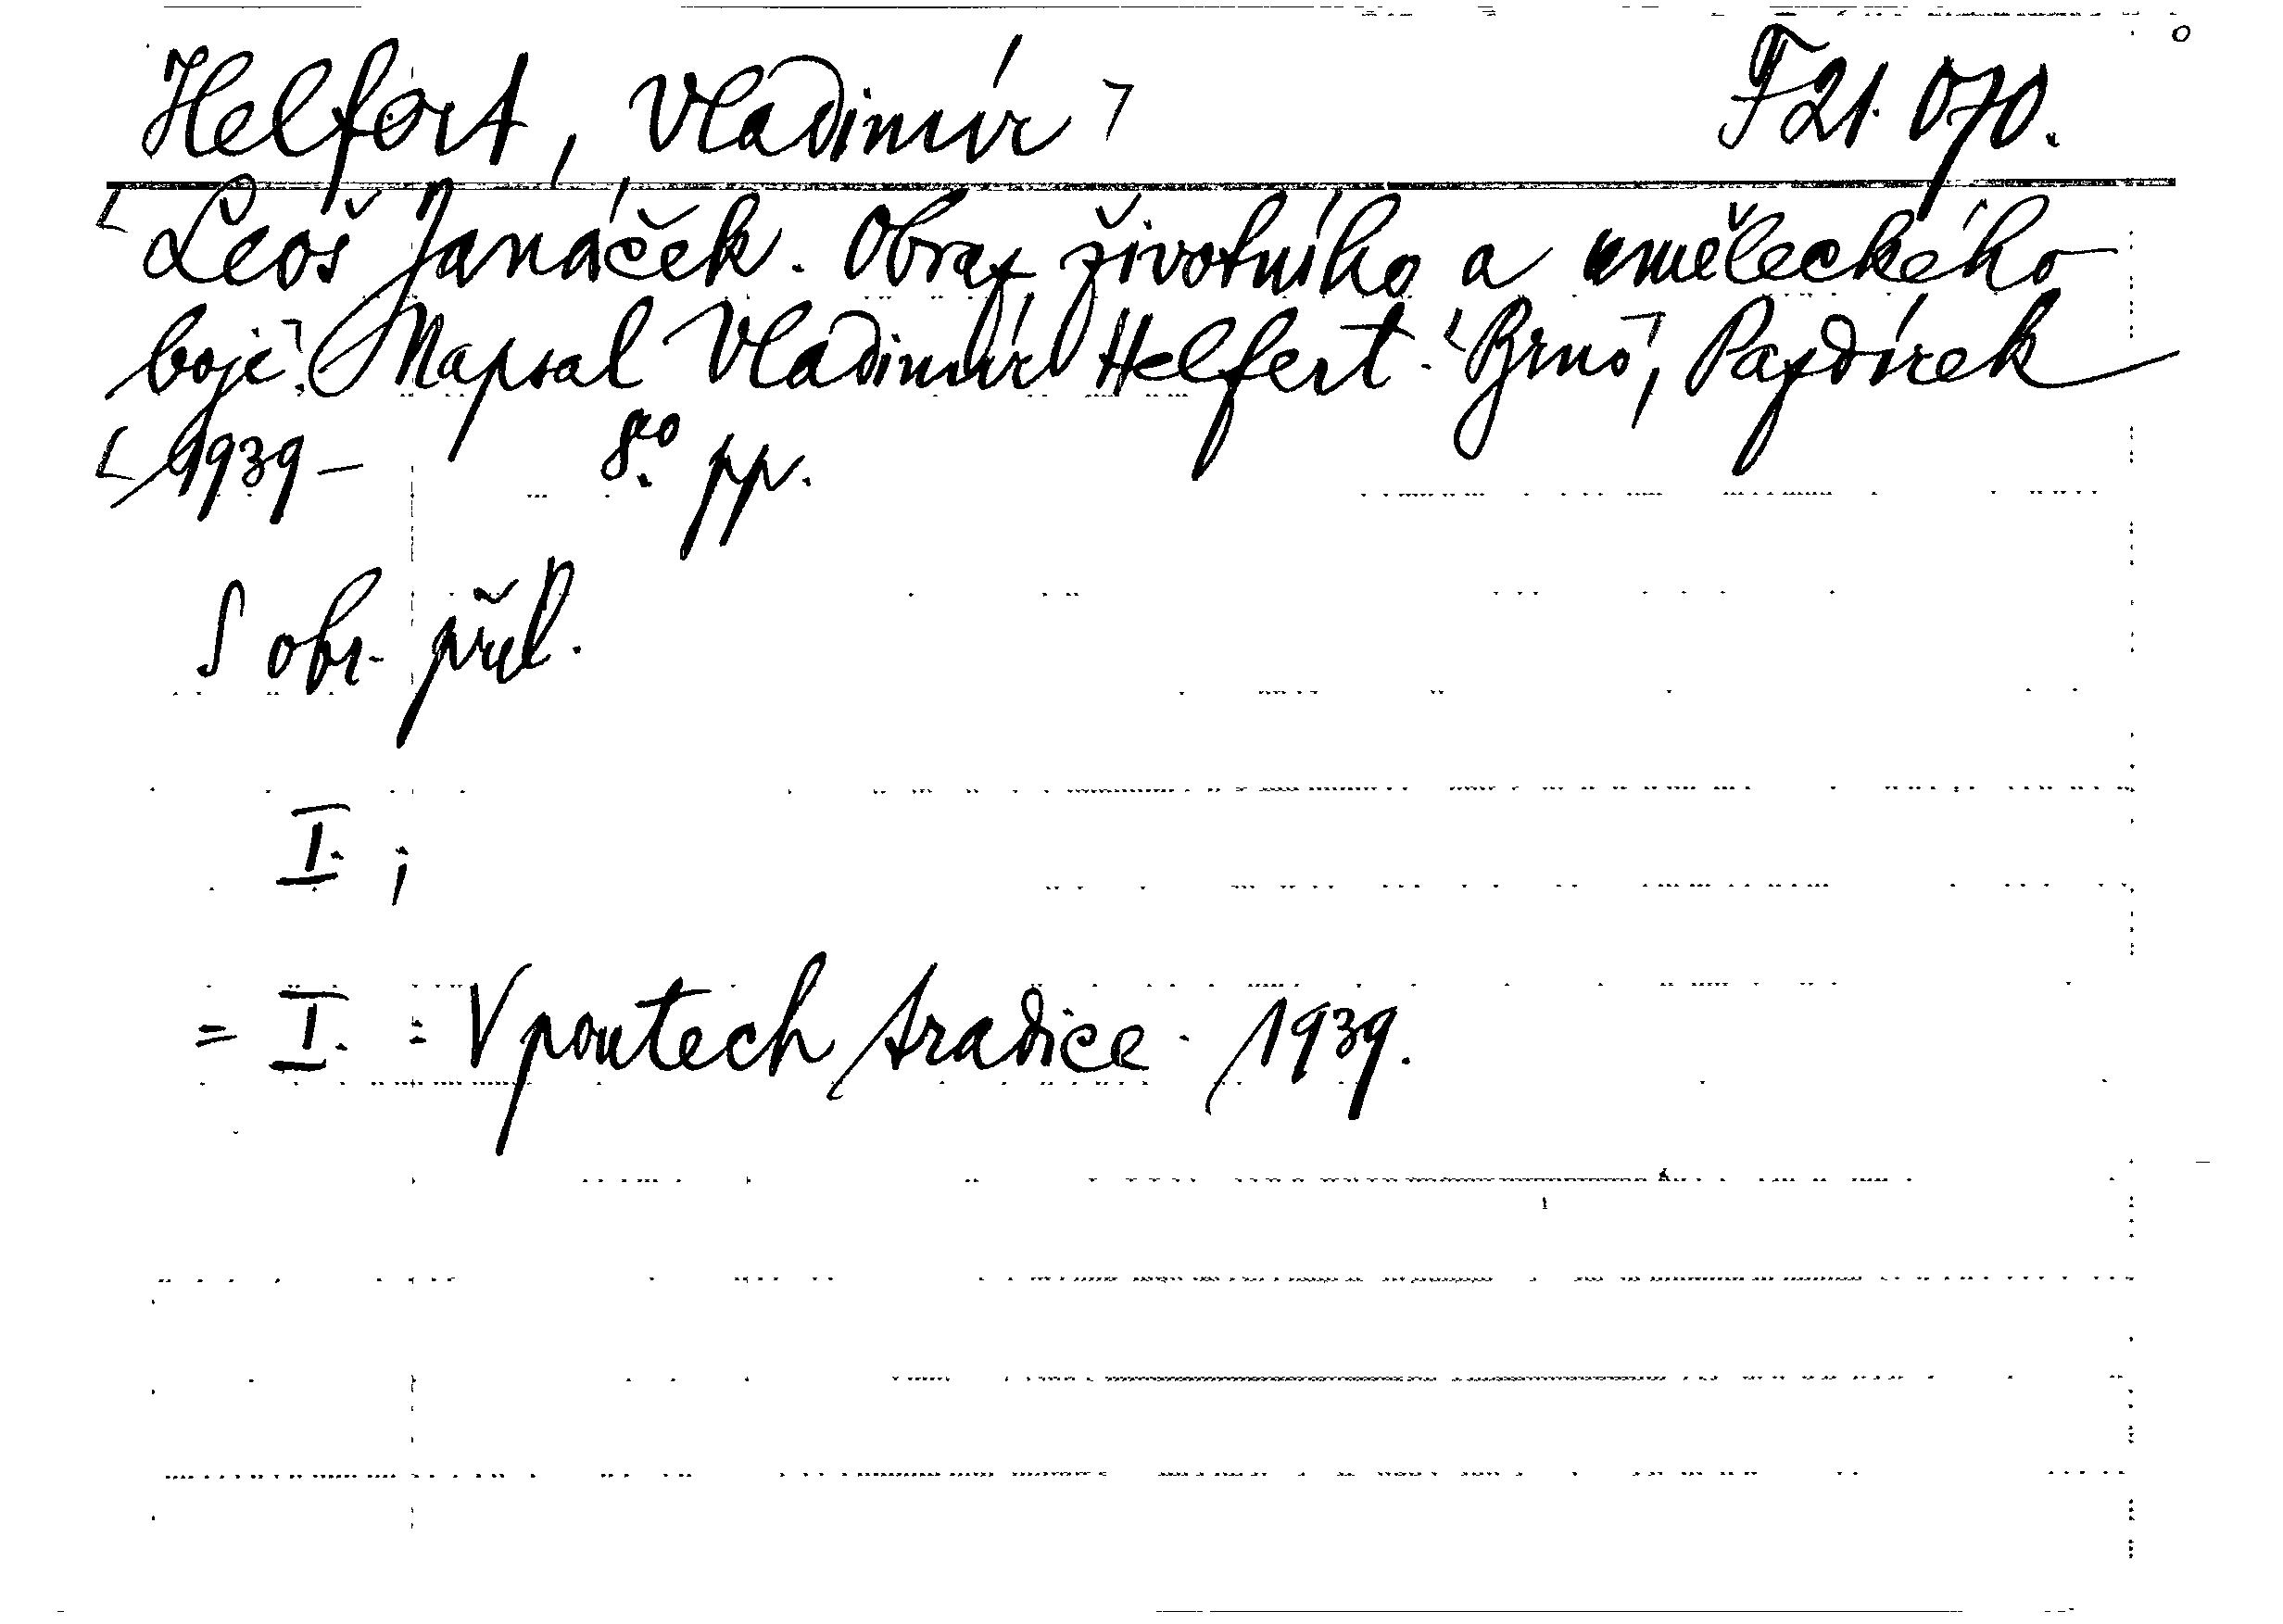 Helfert, Vladimír F 21.070.
Leoš Janáček. Obraz životního a uměleckého
boje. Napsal Vladimír Helfert. Brno, Pazdírek
1939 – 8.o pp.
S obr. příl.
I. ;
= I. : V poutech tradice. 1939.